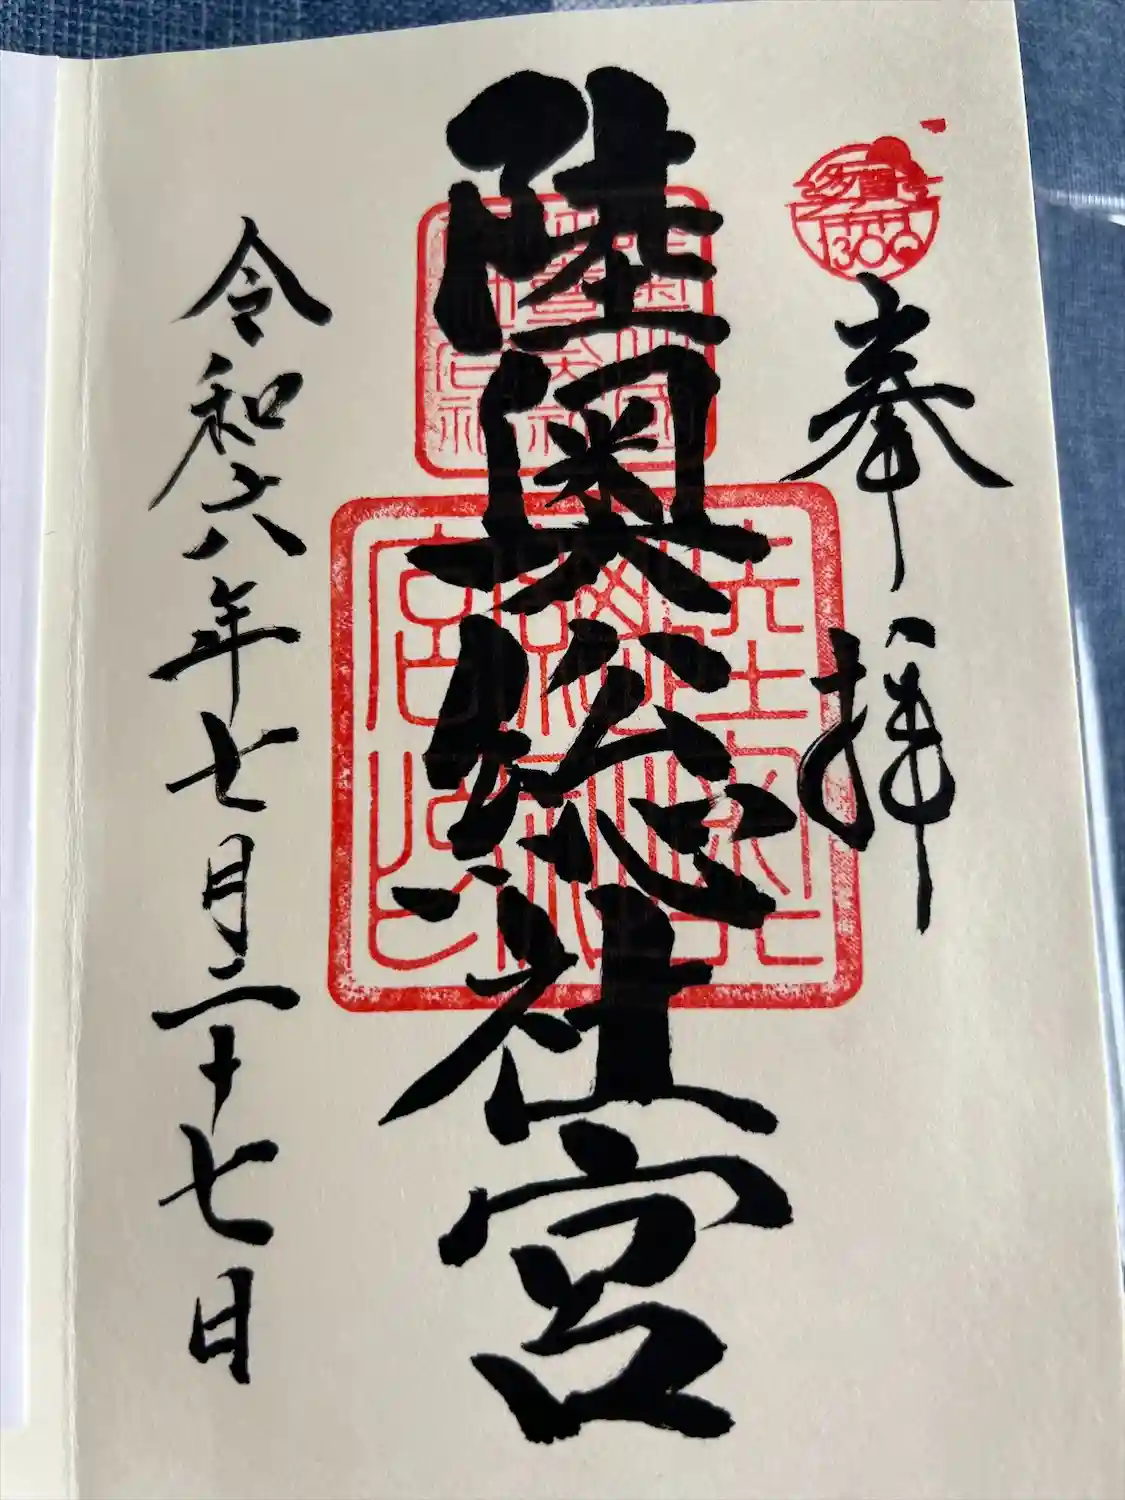 多賀城
1300
奉拝
陸奥総社宮
令和六年七月二十七日